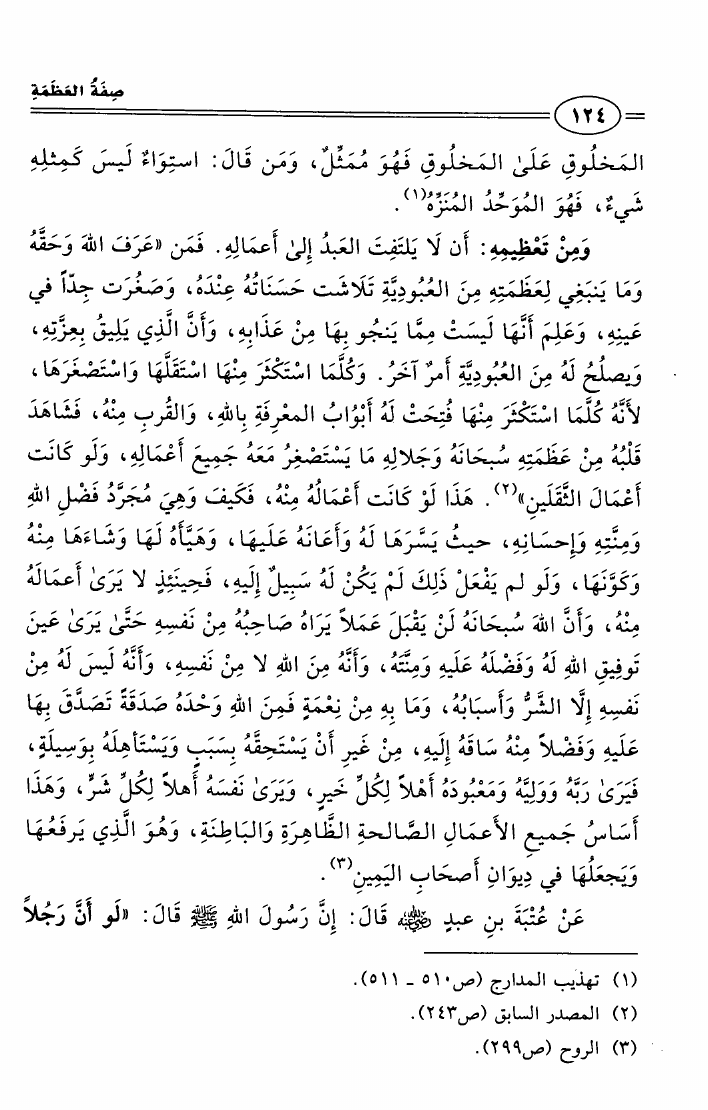 صِفَةُ العَظَمَةِ
١٢٤
المَخلُوقِ عَلَىٰ المَخلُوقِ فَهُوَ مُمَثِّلٌ، وَمَن قَالَ: استِوَاءٌ لَيسَ كَمِثلِهِ
شَيءٌ، فَهُوَ المُوَحِّدُ المُنَزِّهُ(١).
وَمِنْ تَعْظِيمِهِ: أَن لَا يَلتَفِتَ العَبدُ إِلىٰ أَعمَالِهِ. فَمَن «عَرَفَ اللهَ وَحَقَّهُ
وَمَا يَنبَغِي لِعَظَمَتِهِ مِنَ العُبُودِيَّةِ تَلَاشَت حَسَنَاتُهُ عِنْدَهُ، وَصَغُرَت جِدّاً في
عَينِهِ، وَعَلِمَ أَنَّهَا لَيسَتْ مِمَّا يَنجُو بِهَا مِنْ عَذَابِهِ، وَأَنَّ الَّذِي يَلِيقُ بِعِزَّتِهِ،
وَيصلُحُ لَهُ مِنَ العُبُودِيَّةِ أَمرٌ آخَرُ. وَكُلَّمَا استَكثَرَ مِنْهَا استَقَلَّهَا وَاسْتَصْغَرَهَا،
لأَنَّهُ كُلَّمَا استَكثَرَ مِنْهَا فُتِحَتْ لَهُ أَبْوَابُ المَعْرِفَةِ بِاللهِ، وَالقُربِ مِنْهُ، فَشَاهَدَ
قَلْبُهُ مِنْ عَظَمَتِهِ سُبحَانَهُ وَجَلالِهِ مَا يَسْتَصْغِرُ مَعَهُ جَمِيعَ أَعْمَالِهِ، وَلَو كَانَت
أَعْمَالَ الثَّقَلَينِ»(٢). هَذَا لَوْ كَانَت أَعْمَالُهُ مِنْهُ، فَكَيفَ وَهِيَ مُجَرَّدُ فَضْلِ اللهِ
وَمِنَّتِهِ وَإِحسَانِهِ، حيثُ يَسَّرَهَا لَهُ وَأَعَانَهُ عَلَيهَا، وَهَيَّأَهُ لَهَا وَشَاءَهَا مِنْهُ
وَكَوَّنَهَا، وَلَو لم يَفْعَلْ ذَلِكَ لَمْ يَكُنْ لَهُ سَبِيلٌ إِلَيهِ، فَحِينَئِذٍ لا يَرَىٰ أَعمَالَهُ
مِنْهُ، وَأَنَّ اللهَ سُبحَانَهُ لَنْ يَقْبَلَ عَمَلاً يَرَاهُ صَاحِبُهُ مِنْ نَفسِهِ حَتَّىٰ يَرَىٰ عَينَ
تَوفِيقِ اللهِ لَهُ وَفَضْلَهُ عَلَيهِ وَمِنَّتَهُ، وَأَنَّهُ مِنَ اللهِ لا مِنْ نَفسِهِ، وَأَنَّهُ لَيسَ لَهُ مِنْ
نَفسِهِ إِلَّا الشَّرُّ وَأَسبَابُهُ، وَمَا بِهِ مِنْ نِعْمَةٍ فَمِنَ اللهِ وَحْدَهُ صَدَقَةً تَصَدَّقَ بِهَا
عَلَيهِ وَفَضْلاً مِنْهُ سَاقَهُ إِلَيهِ، مِنْ غَيرِ أَنْ يَسْتَحِقَّهُ بِسَبَبٍ وَيَسْتَأهِلَهُ بِوَسِيلَةٍ،
فَيَرَىٰ رَبَّهُ وَوَلِيَّهُ وَمَعْبُودَهُ أَهْلاً لِكُلِّ خَيرٍ، وَيَرَىٰ نَفسَهُ أَهلاً لِكُلِّ شَرٍّ، وَهَذَا
أَسَاسُ جَمِيعِ الأَعمَالِ الصَّالحةِ الظَّاهِرَةِ وَالبَاطِنَةِ، وَهُوَ الَّذِي يَرفَعُهَا
وَيَجعَلُهَا في دِيوَانِ أَصحَابِ اليَمِينِ(٣).
عَنْ عُتْبَةَ بنِ عبدٍ رضي الله عنه قَالَ: إِنَّ رَسُولَ اللهِ ﷺ قَالَ: «لَو أَنَّ رَجُلاً
(١) تهذيب المدارج (ص٥١٠ - ٥١١).
(٢) المصدر السابق (ص٢٤٣).
(٣) الروح (ص٢٩٩).